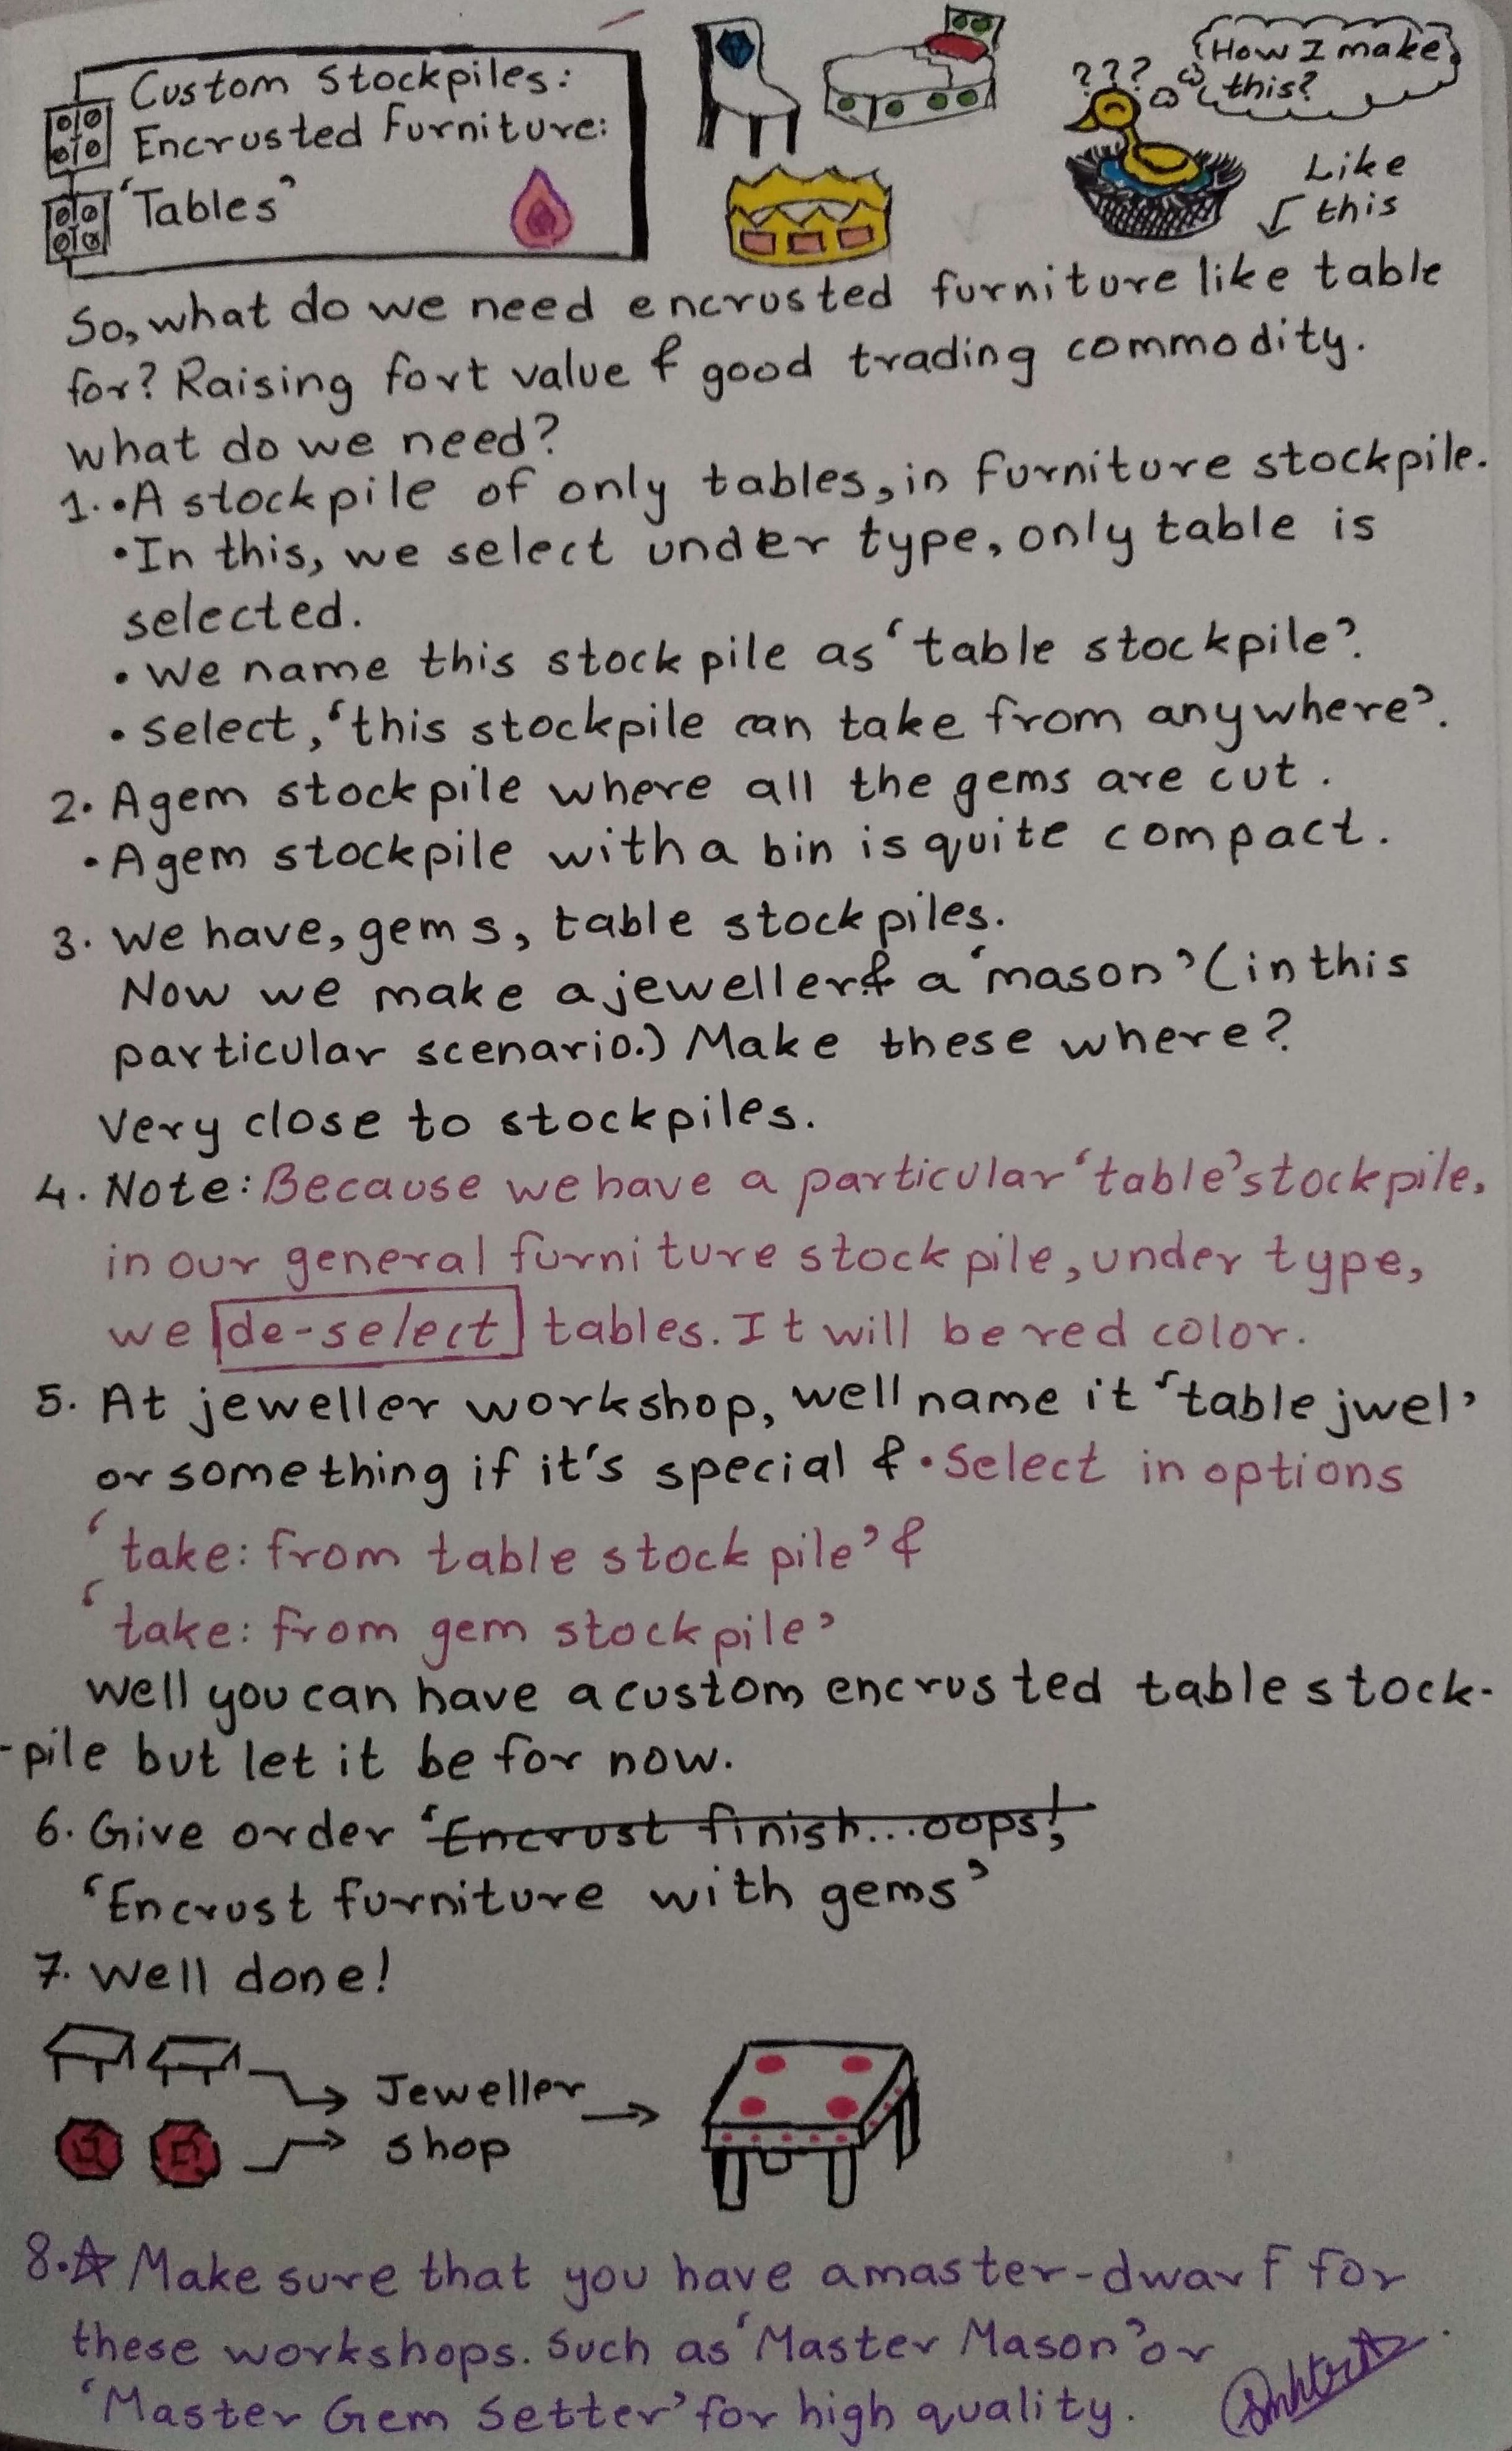 Custom Stockpiles:
Encrusted Furniture:
'Tables'
???
How I make
this?
Like
this
So, what do we need encrusted furniture like table
for? Raising fort value & good trading commodity.
What do we need?
1. • A stockpile of only tables, in furniture stockpile.
• In this, we select under type, only table is
selected.
• We name this stockpile as 'table stockpile'.
• Select, 'this stockpile can take from anywhere'.
2. A gem stockpile where all the gems are cut.
• A gem stockpile with a bin is quite compact.
3. We have, gems, table stockpiles.
Now we make a jeweller & a 'mason' (in this
particular scenario.) Make these where?
Very close to stockpiles.
4. Note: Because we have a particular 'table' stockpile,
in our general furniture stockpile, under type,
we de-select tables. It will be red color.
5. At jeweller workshop, well name it 'table jwel'
or something if it's special & • Select in options
'take: from table stockpile' &
'take: from gem stockpile'
Well you can have a custom encrusted table stock-
-pile but let it be for now.
6. Give order 'Encrust finish...oops!,
'Encrust furniture with gems'
7. Well done!
Jeweller
shop
8. ☆ Make sure that you have a master-dwarf for
these workshops. Such as 'Master Mason' or
'Master Gem Setter' for high quality.